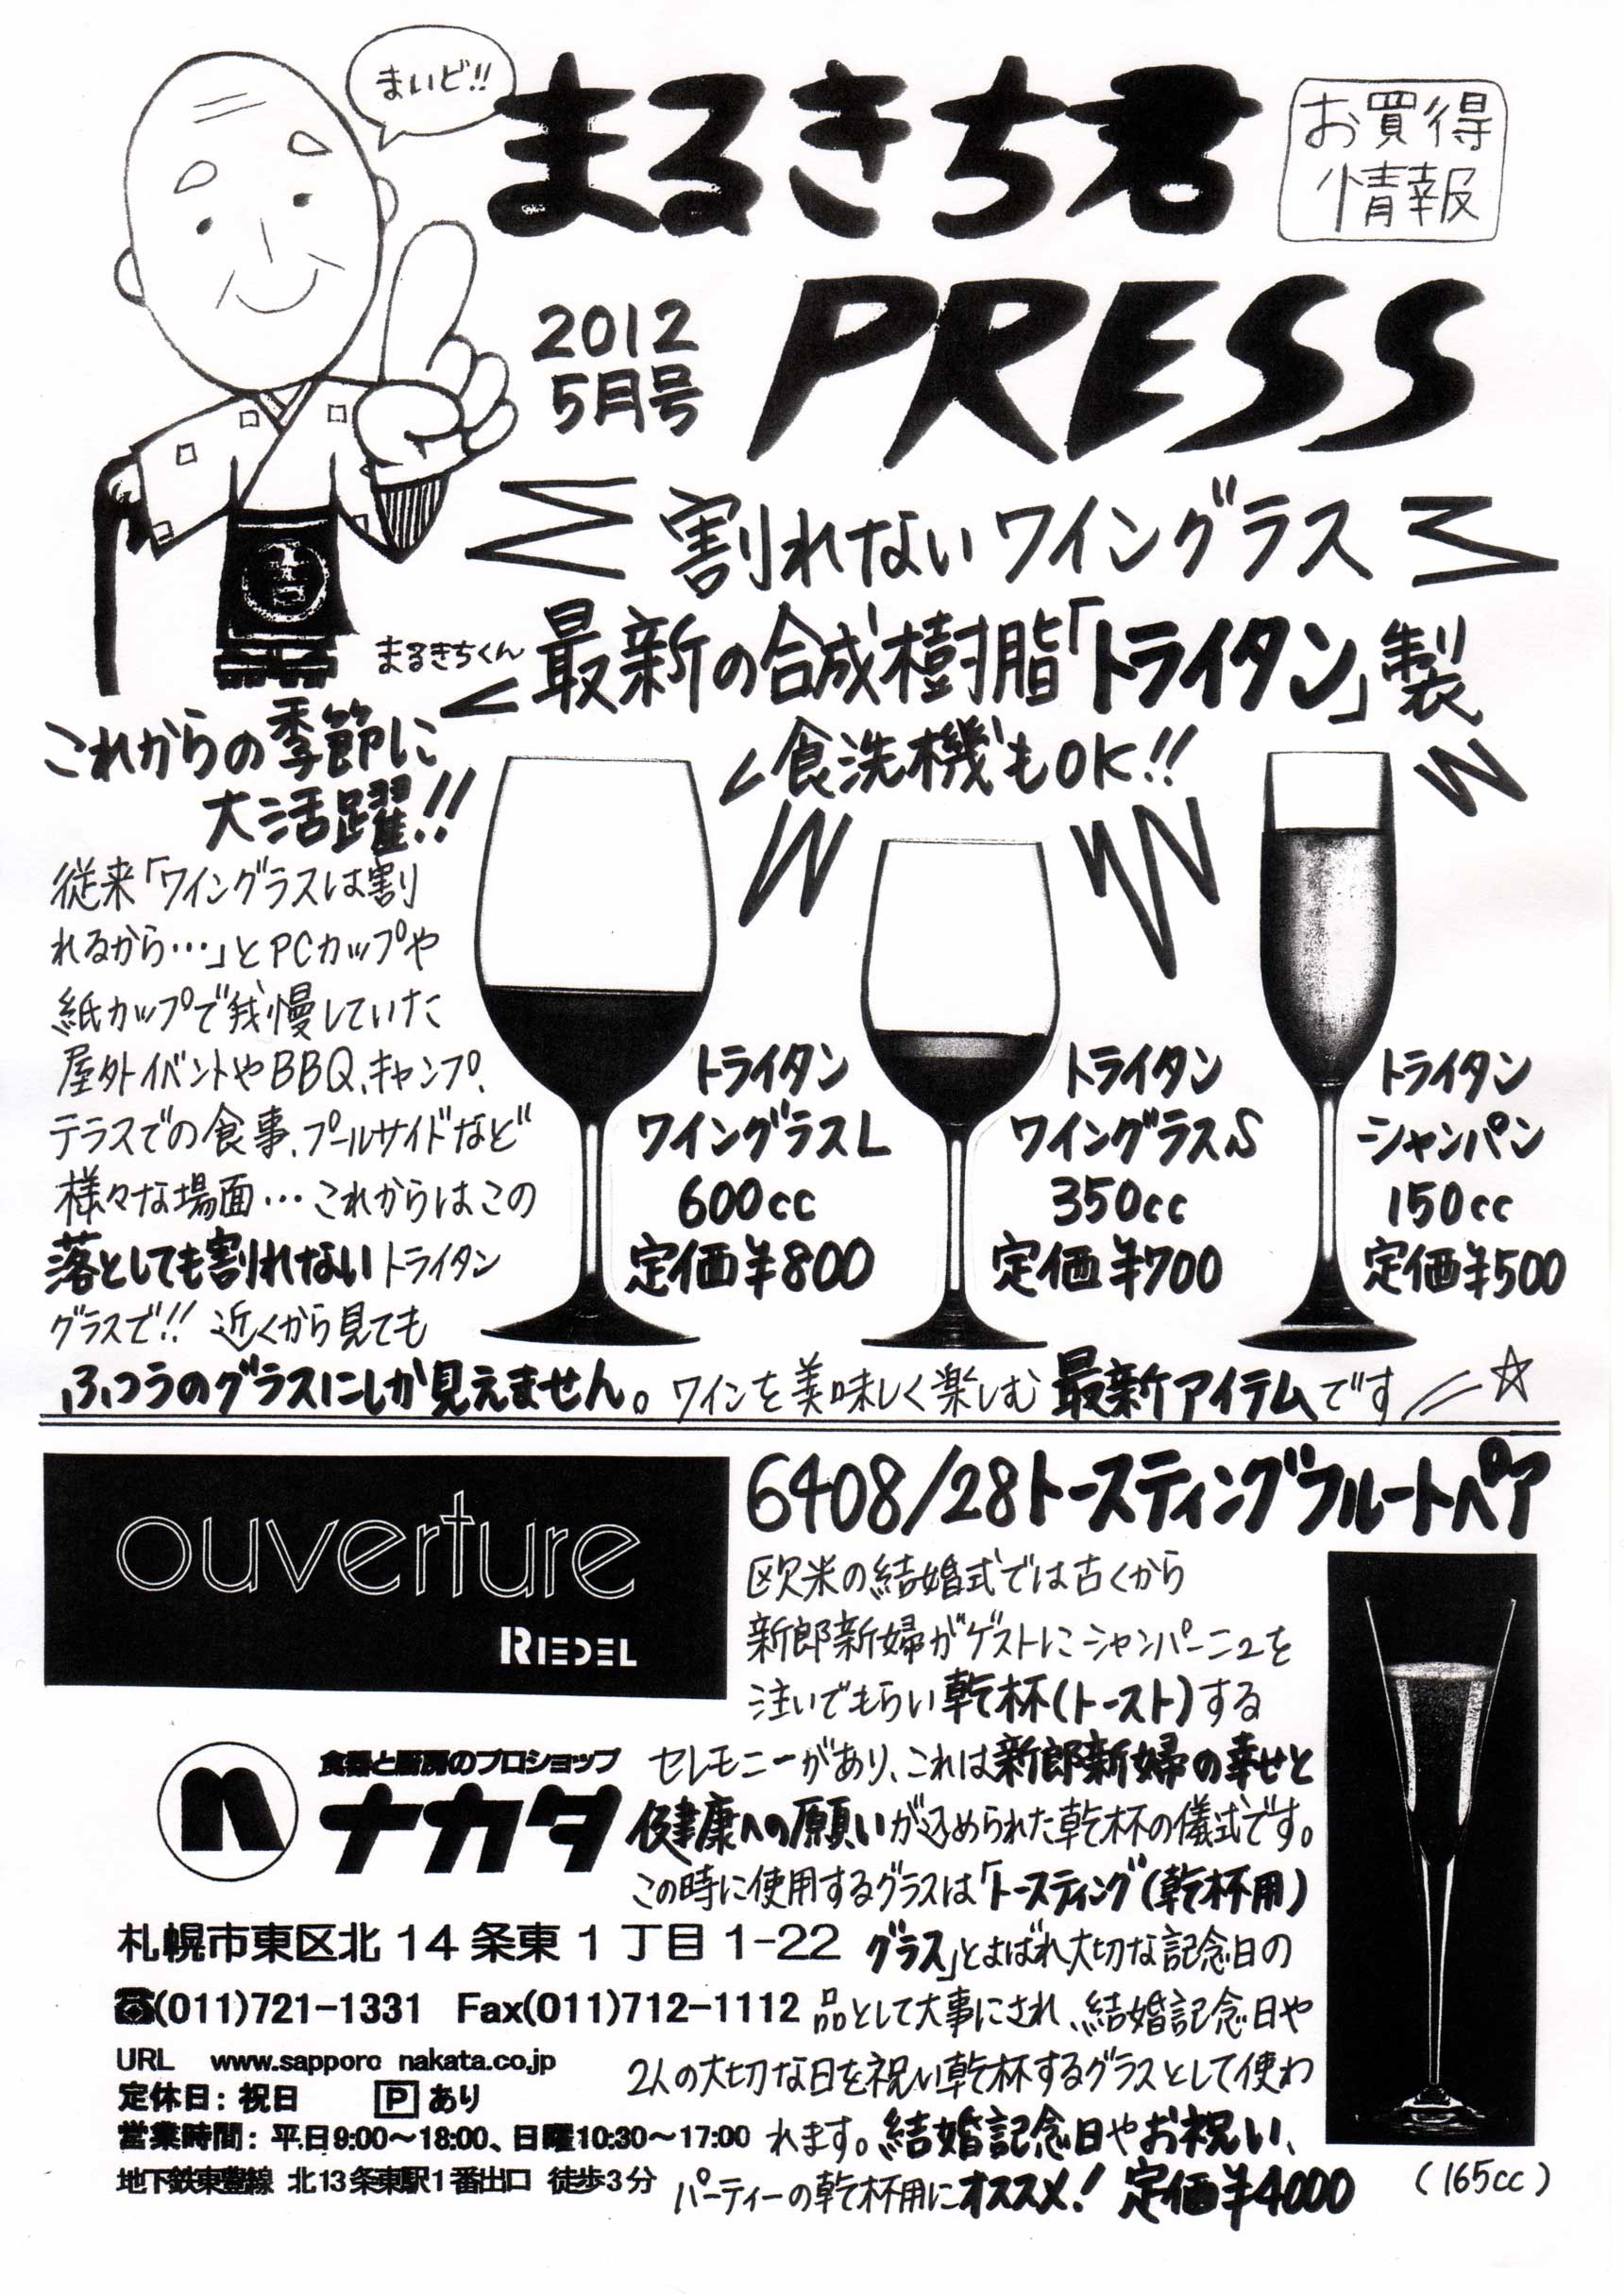 まいど!!
まるきち君
お買得
情報
PRESS
2012
5月号
割れないワイングラス
まるきちくん
最新の合成樹脂「トライタン」製
食洗機もOK!!
これからの季節に
大活躍!!
従来「ワイングラスは割り
れるから…」とPCカップや
紙カップで我慢していた
屋外イベントやBBQ、キャンプ、
テラスでの食事、プールサイドなど
様々な場面…これからはこの
落としても割れないトライタン
グラスで!! 近くから見ても
ふつうのグラスにしか見えません。ワインを美味しく楽しむ最新アイテムです
トライタン
ワイングラスL
600cc
定価¥800
トライタン
ワイングラスS
350cc
定価¥700
トライタン
シャンパン
150cc
定価¥500
ouverture
RIEDEL
6408/28トースティングフルートペア
欧米の結婚式では古くから
新郎新婦がゲストにシャンパーニュを
注いでもらい乾杯(トースト)する
セレモニーがあり、これは新郎新婦の幸せと
健康への願いが込められた乾杯の儀式です。
この時に使用するグラスは「トースティング(乾杯用)
グラス」とよばれ大切な記念日の
品として大事にされ、結婚記念日や
2人の大切な日を祝い乾杯するグラスとして使わ
れます。結婚記念日やお祝い、
パーティーの乾杯用にオススメ! 定価¥4000
(165cc)
n
食器と厨房のプロショップ
ナカタ
札幌市東区北14条東1丁目1-22
☎(011)721-1331 Fax(011)712-1112
URL www.sapporo nakata.co.jp
定休日: 祝日 P あり
営業時間: 平日9:00～18:00、日曜10:30～17:00
地下鉄東豊線 北13条東駅1番出口 徒歩3分